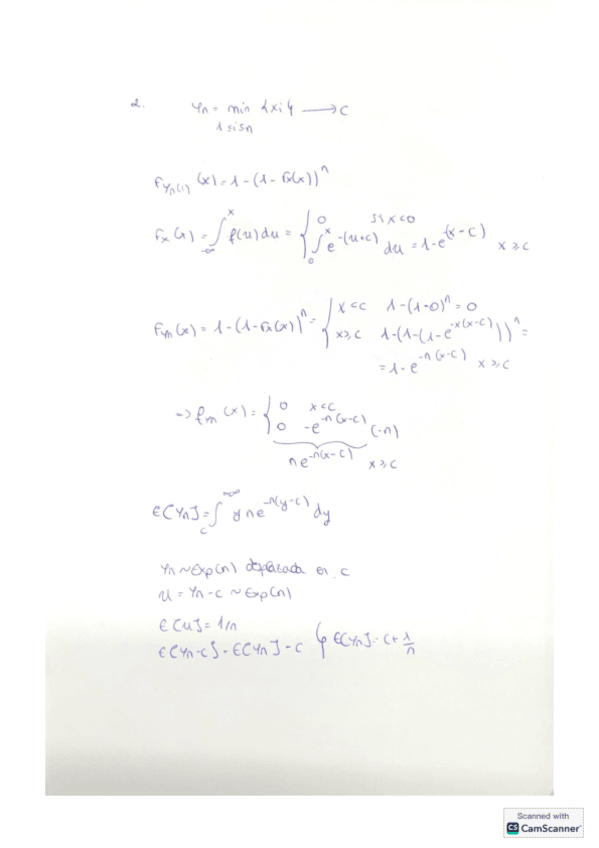 2. Yn = min {xi} → c
1≤i≤n
F_{Yn(1)}(x) = 1-(1-Fx(x))^n
Fx(x) = ∫_{-∞}^{x} f(u)du = { 0 si x<0
∫_0^x e^{-(u+c)} du = 1-e^{-(x-c)} x≥c
F_{Yn}(x) = 1-(1-Fx(x))^n = { x<c 1-(1-0)^n = 0
x≥c 1-(1-(1-e^{-x(x-c)}))^n =
= 1-e^{-n(x-c)} x≥c
=> f_{Yn}(x) = { 0 x<c
0 -e^{-n(x-c)} (-n)
ne^{-n(x-c)} x≥c
E[Yn] = ∫_c^{+∞} y ne^{-n(y-c)} dy
Yn ~ Exp(n) desplazada en c
u = Yn-c ~ Exp(n)
E[u] = 1/n
E[Yn-c] = E[Yn]-c } E[Yn] = c+1/n
Scanned with
CS CamScanner